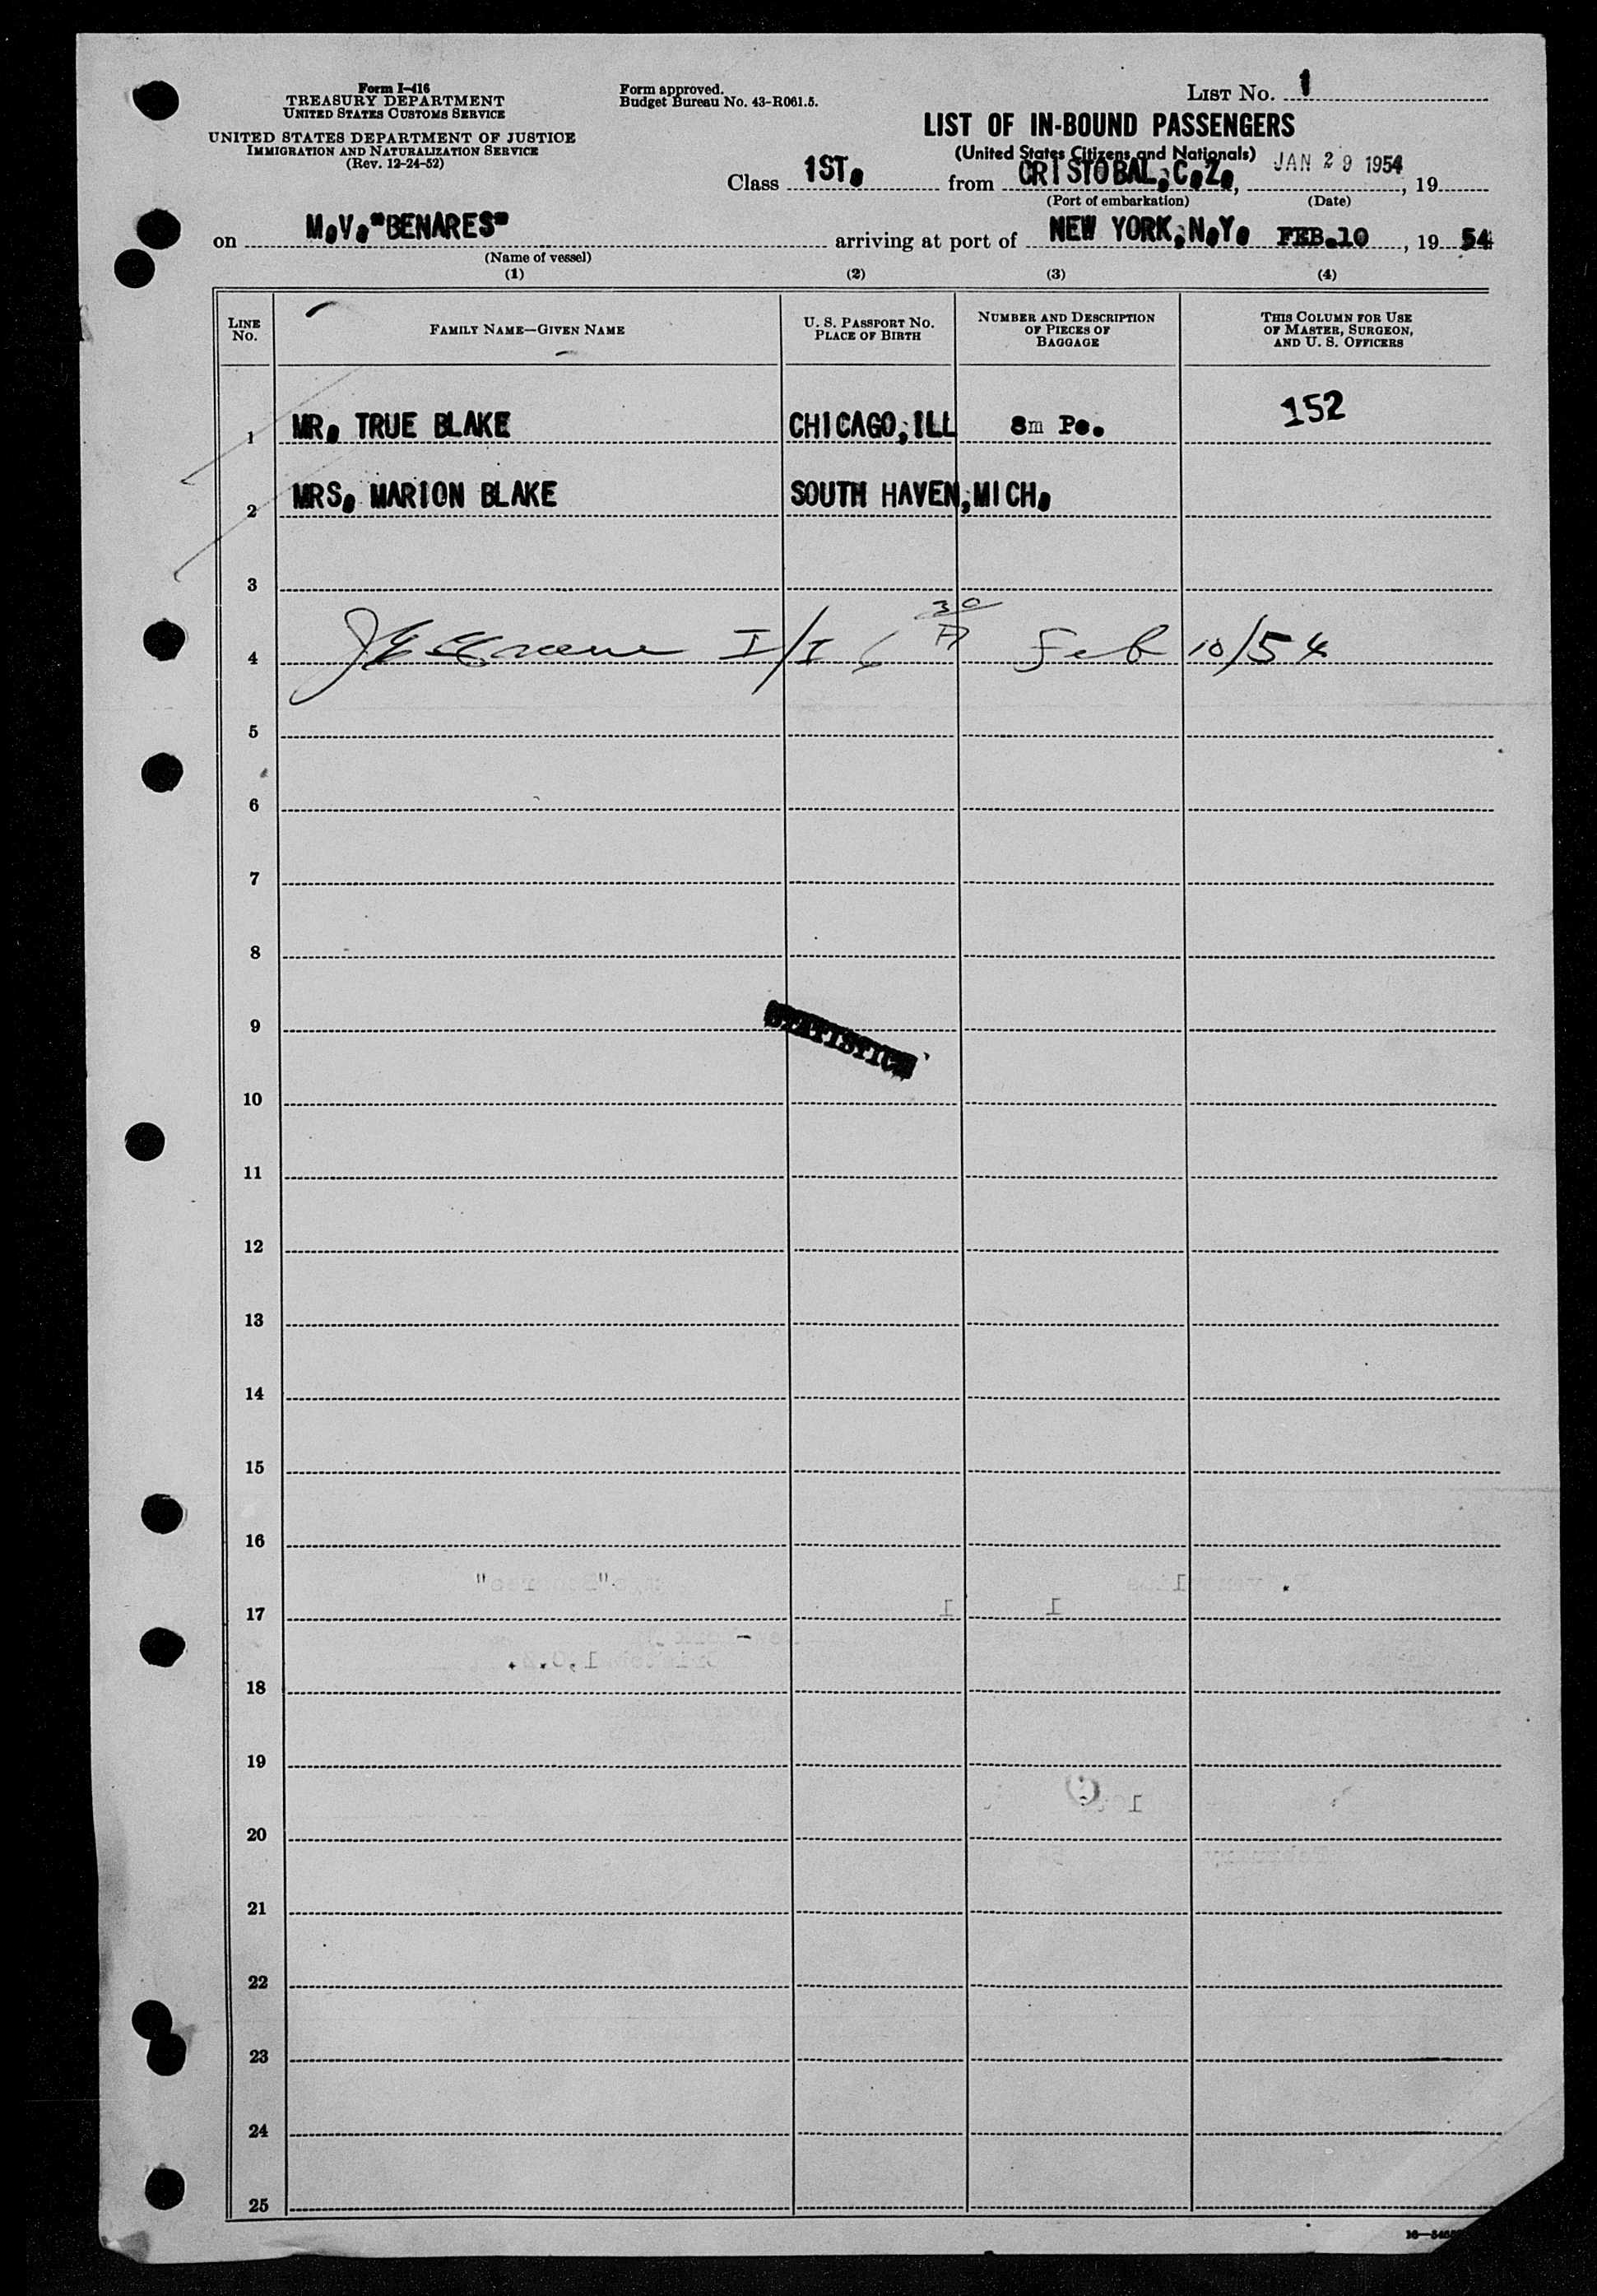 Form I-416
TREASURY DEPARTMENT
UNITED STATES CUSTOMS SERVICE
UNITED STATES DEPARTMENT OF JUSTICE
IMMIGRATION AND NATURALIZATION SERVICE
(Rev. 12-24-52)
Form approved.
Budget Bureau No. 43-R061.5.
LIST NO. 1
LIST OF IN-BOUND PASSENGERS
(United States Citizens and Nationals)
Class 1ST. from CRISTOBAL,C.Z., JAN 29 1954, 19
(Port of embarkation) (Date)
on M.V."BENARES" arriving at port of NEW YORK,N.Y. FEB.10, 19 54
(Name of vessel)
(1) (2) (3) (4)
LINE NO. FAMILY NAME—GIVEN NAME U. S. PASSPORT NO. PLACE OF BIRTH NUMBER AND DESCRIPTION OF PIECES OF BAGGAGE THIS COLUMN FOR USE OF MASTER, SURGEON, AND U. S. OFFICERS
152
1 MR. TRUE BLAKE CHICAGO,ILL 8m Pc.
2 MRS. MARION BLAKE SOUTH HAVEN,MICH.
3
4 I/I Feb 10/54
5
6
7
8
9
STATISTICS
10
11
12
13
14
15
16
17
18
19
20
21
22
23
24
25